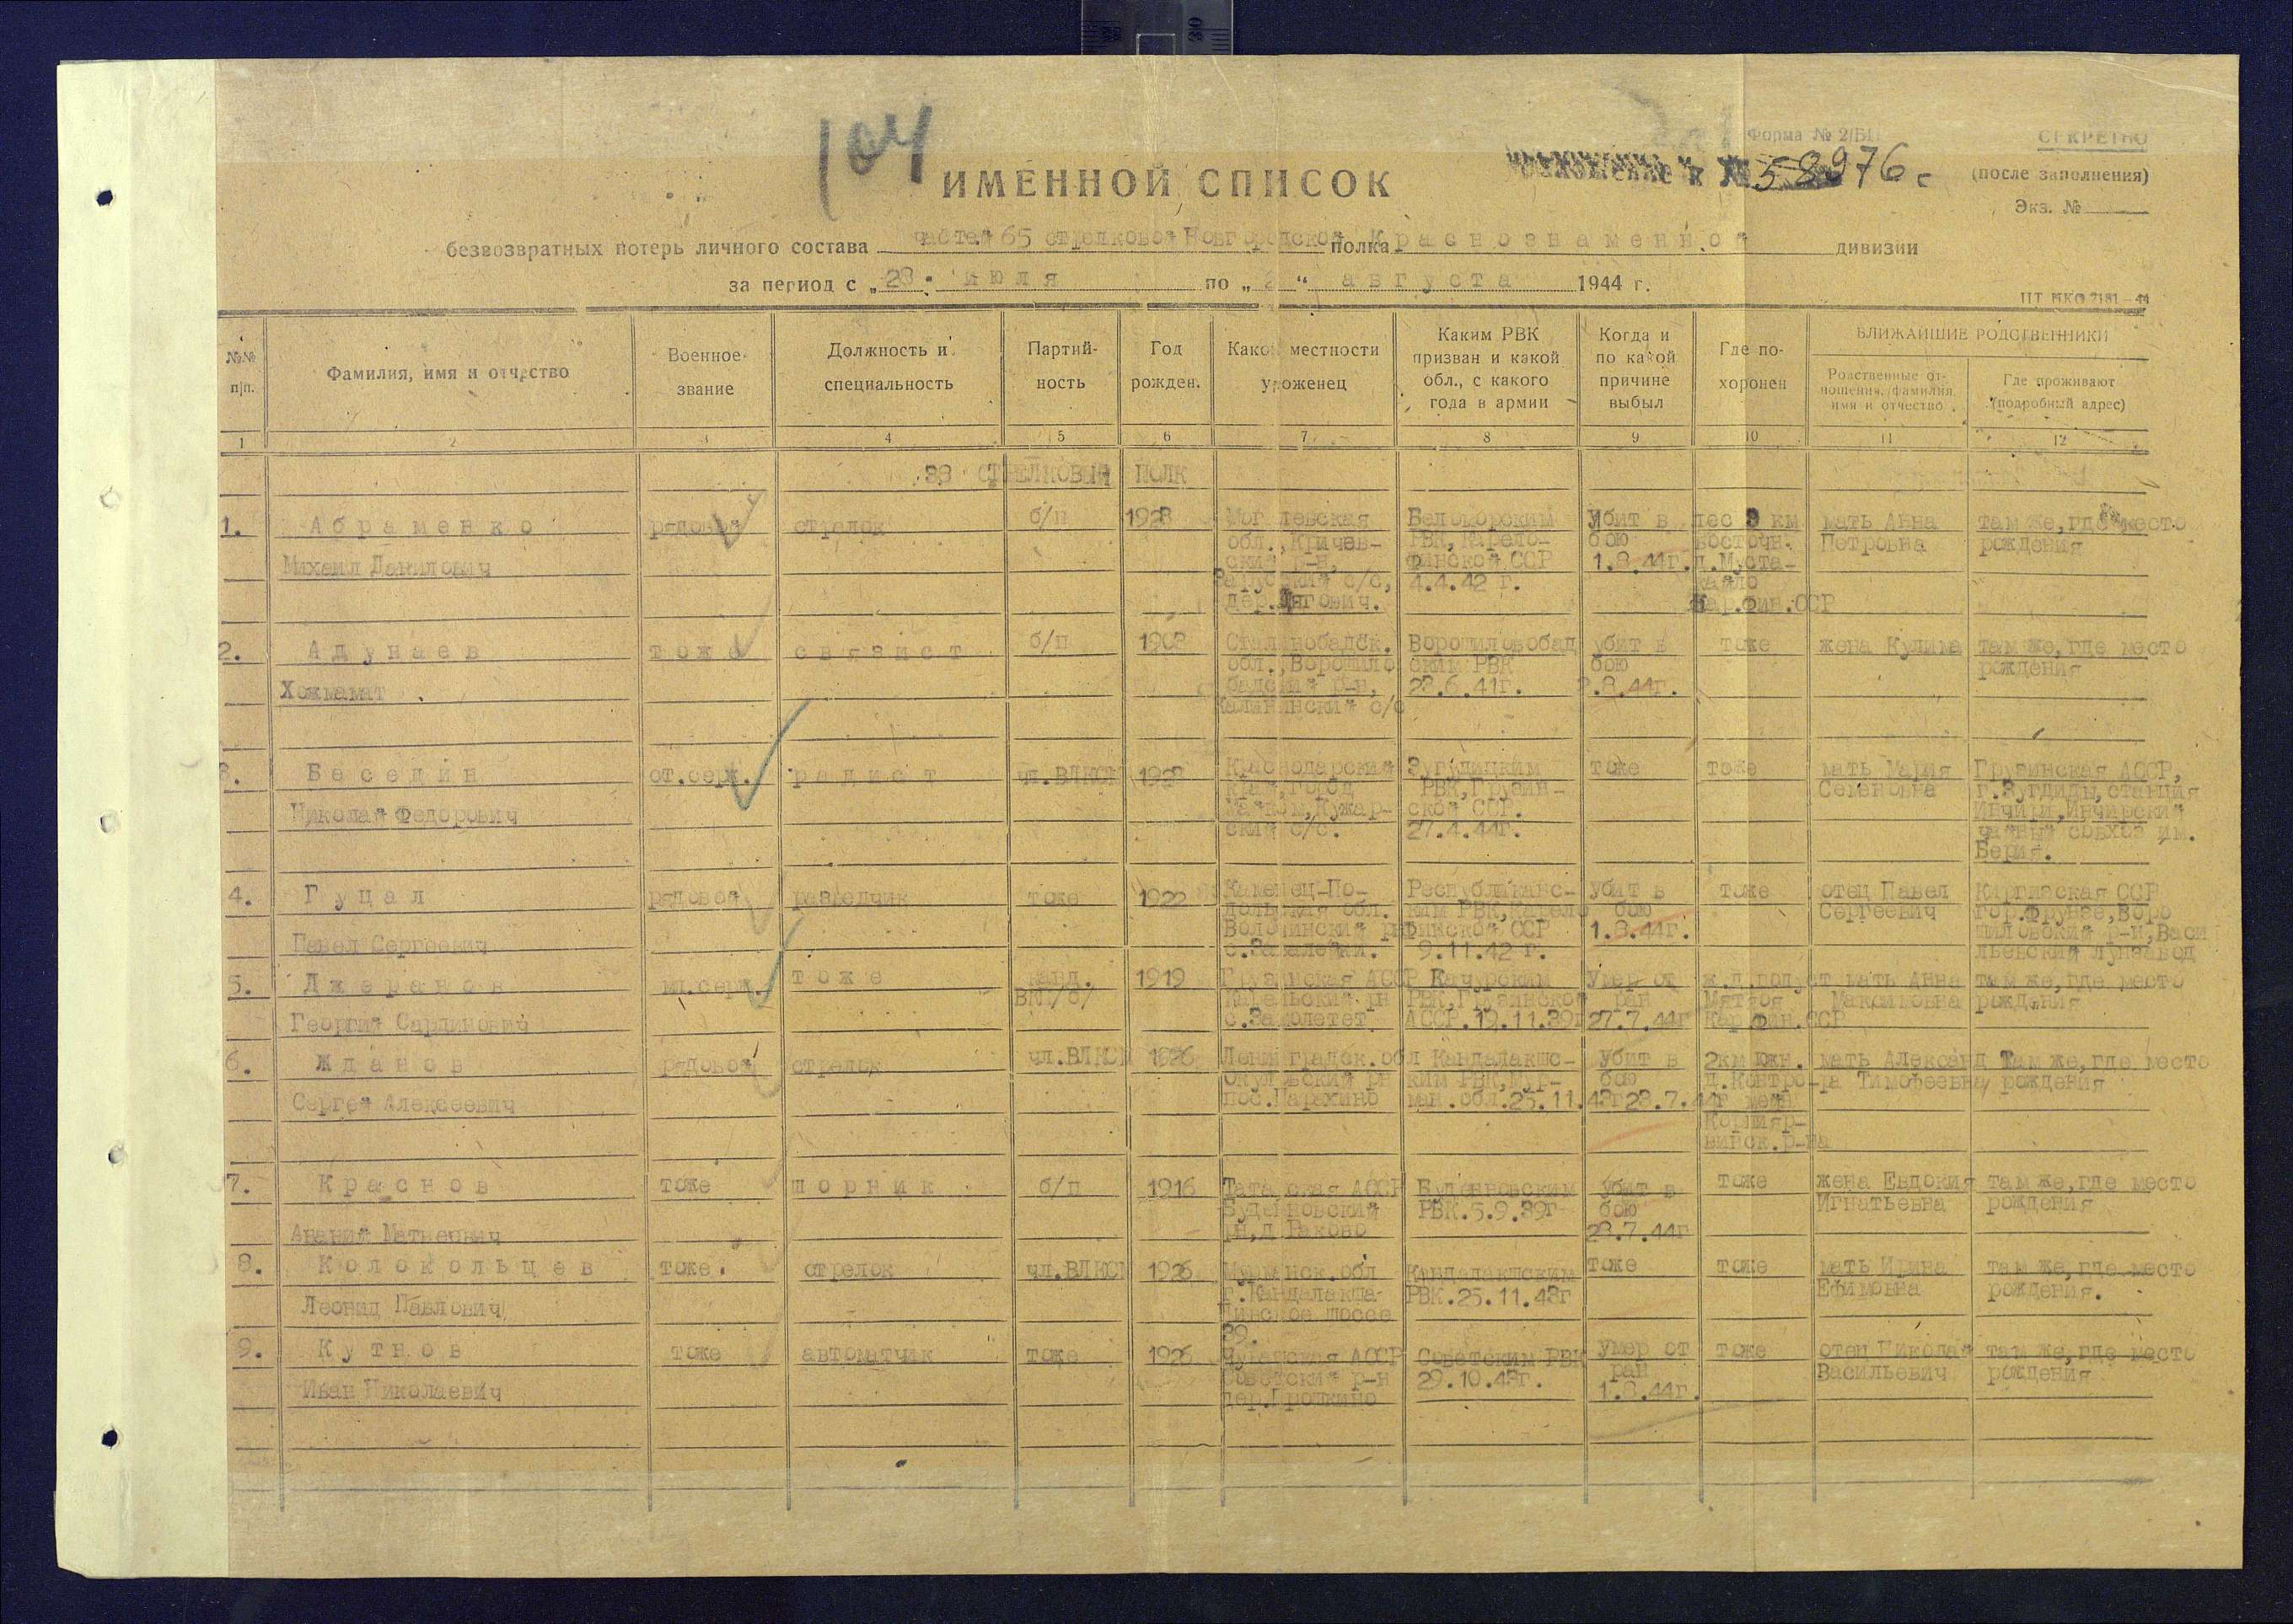 104
Форма № 2/БП
СЕКРЕТНО
58976с
(после заполнения)
Экз. №
ИМЕННОЙ СПИСОК
безвозвратных потерь личного состава частей 65 стрелковой Новгородской полка Краснознаменной дивизии
за период с „28" июля по „2“ августа 1944 г.
№№ п/п.
Фамилия, имя и отчество
Военное звание
Должность и специальность
Партийность
Год рожден.
Какой местности уроженец
Каким РВК призван и какой обл., с какого года в армии
Когда и по какой причине выбыл
Где похоронен
БЛИЖАЙШИЕ РОДСТВЕННИКИ
Родственные отношения, фамилия, имя и отчество
Где проживают (подробный адрес)
1 2 3 4 5 6 7 8 9 10 11 12
38 СТРЕЛКОВЫЙ ПОЛК
1. Абраменко рядовой стрелок б/п 1923 Могилевская Беломорским Убит в лес 3 км мать Анна там же, где место
обл., Кричев- РВК, Карело- бою восточн. Петровна рождения
Михаил Данилович ский р-н, финской ССР 1.8.44г. д.Муста-
с/с, 4.4.42 г.
дер. Кар.Фин.ССР
2. Адунаев тоже связист б/п 1908 Сталинобадск. Ворошиловобад убит в тоже жена Кулима там же, где место
обл., Ворошило ским РВК бою рождения
Хожмамат бадский р-н, 23.6.41г. 2.8.44г.
Калининский с/с
3. Беседин ст.серж. радист чл.ВЛКСМ Краснодарский Зугдидским тоже тоже мать Мария Грузинская АССР,
край, город РВК, Грузин- Семеновна г.Зугдиды, станция
Николай Федорович ской ССР. Инчири, Инчирский
ский с/с. 27.4.44г. чайный совхоз им.
Берия.
4. Гуцал рядовой разведчик тоже 1922 Каменец-По- Республиканс- убит в тоже отец Павел Киргизская ССР
дольская обл. ким РВК, Карело бою Сергеевич гор.Фрунзе, Воро
Павел Сергеевич финской ССР 1.8.44г. шиловский р-н, Васи
9.11.42 г. льевский лунзавод
5. Джеранов мл.серж. тоже канд. 1919 Грузинская АССР Качурским Умер от ж.д.полуст мать Анна там же, где место
ВКП/б/ Карельский рн РВК, Грузинской ран Максимовна рождения
Георгий Сардинович АССР.19.11.39г 27.7.44г Кар.фин.ССР
6. Жданов рядовой стрелок чл.ВЛКСМ 1926 Ленинградск.обл Кандалакшс- Убит в 2км южн. мать Александ там же, где место
Окуловский рн ким РВК, Мур- бою д.Контро- ра Тимофеевна рождения
Сергей Алексеевич пос.Парахино ман.обл.25.11.43г 28.7.44г
р-на
7. Краснов тоже шорник б/п 1916 Татарская АССР Буденновским убит в тоже жена Евдокия там же, где место
Буденновский РВК.5.9.39г бою Игнатьевна рождения
Ананий Матвеевич рн, д Раково 28.7.44г
8. Колокольцев тоже стрелок чл.ВЛКСМ 1926 Мурманск.обл Кандалакшским тоже тоже мать Ирина там же, где место
г.Кандалакша РВК.25.11.43г Ефимовна рождения.
Леонид Павлович шоссе
39.
9. Кутнов тоже автоматчик тоже 1926 Чувашская АССР Советским РВК умер от тоже отец Николай там же, где место
Советский р-н 29.10.43г. ран Васильевич рождения
Иван Николаевич 1.8.44г.